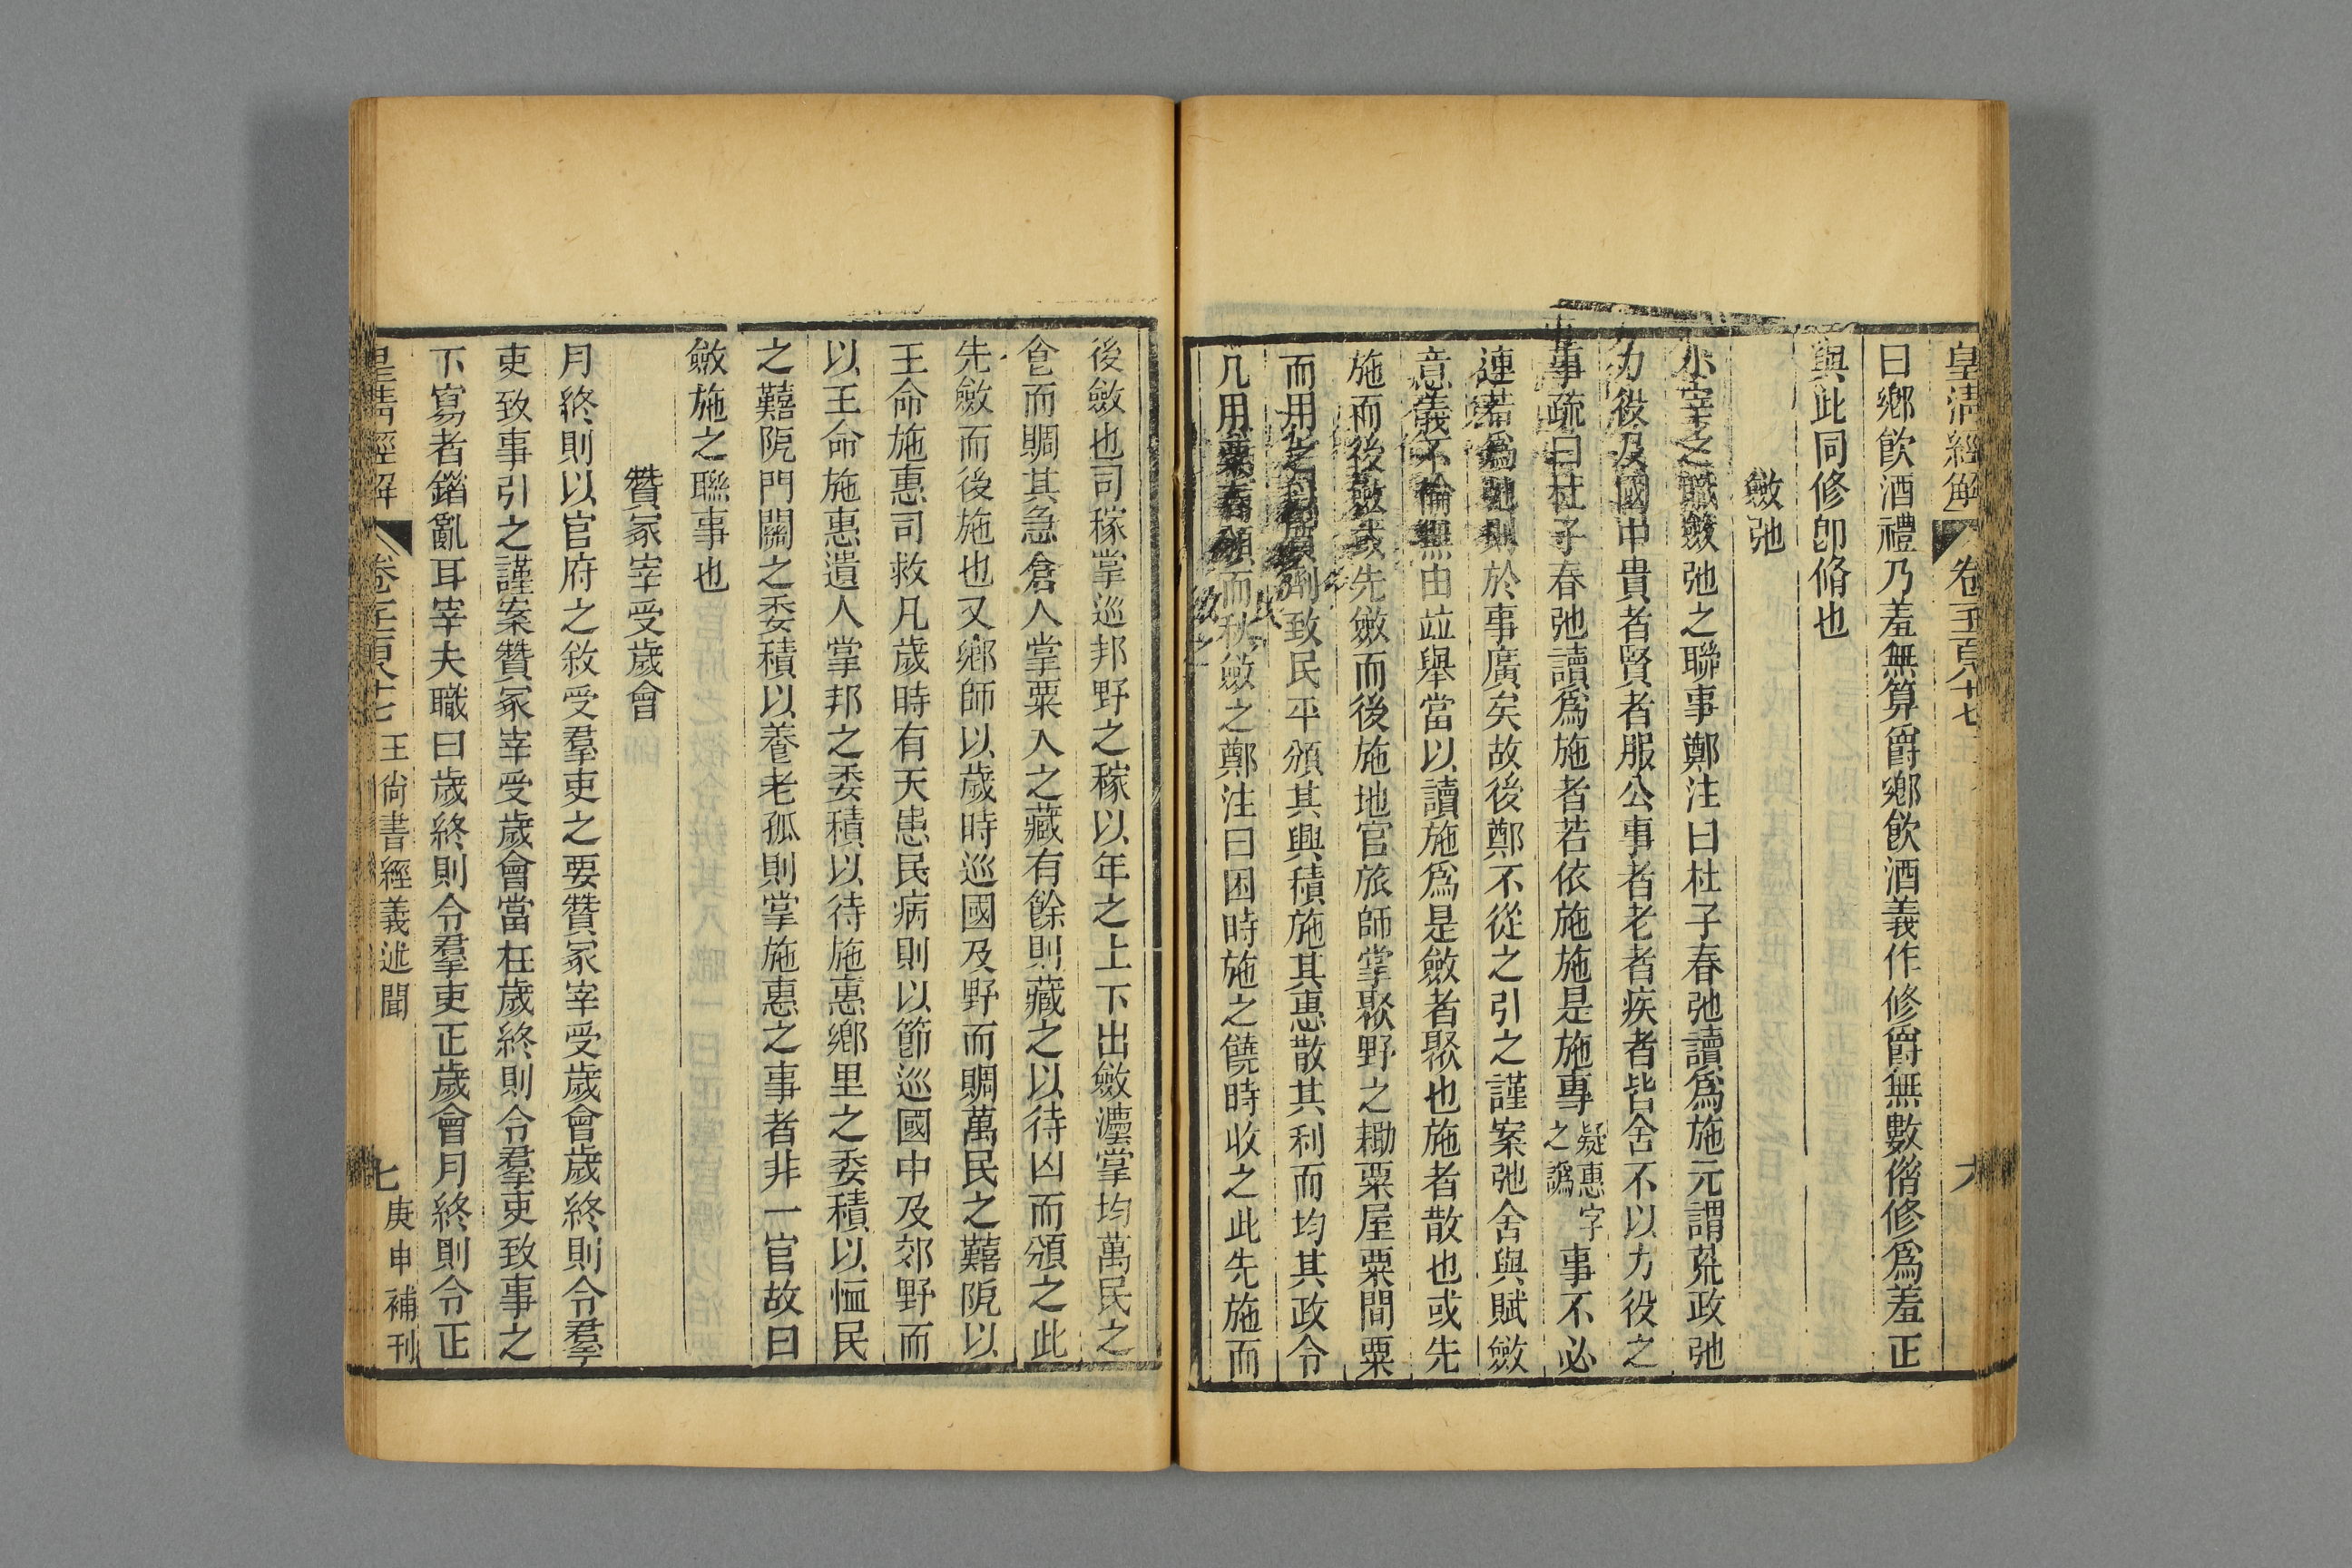 皇清經解 卷 六
曰鄉飮酒禮乃羞無算爵鄉飮酒義作修爵無數偺修爲羞正
與此同修卽脩也
斂弛
小宰之職斂弛之聯事鄭注曰杜子春弛讀爲施元謂荒政弛
力役及國中貴者賢者服公事者老者疾者皆舍不以力役之
事疏曰杜子春弛讀爲施者若依施施是施專疑惠字之譌事不必
連若爲弛則於事廣矣故後鄭不從之引之謹案弛舍與賦斂
意義不倫無由竝舉當以讀施爲是斂者聚也施者散也或先
施而後斂或先斂而後施地官旅師掌聚野之耡粟屋粟閒粟
而用之 致民平頒其興積施其惠散其利而均其政令
凡用粟春頒而秋斂之鄭注曰困時施之饒時收之此先施而
後斂也司稼掌巡邦野之稼以年之上下出斂灋掌均萬民之
食而賙其急倉人掌粟入之藏有餘則藏之以待凶而頒之此
先斂而後施也又鄉師以歲時巡國及野而賙萬民之囏阨以
王命施惠司救凡歲時有天患民病則以節巡國中及郊野而
以王命施惠遺人掌邦之委積以待施惠鄉里之委積以恤民
之囏阨門關之委積以養老孤則掌施惠之事者非一官故曰
斂施之聯事也
贊冢宰受歲會
月終則以官府之敘受羣吏之要贊冢宰受歲會歲終則令羣
吏致事引之謹案贊冢宰受歲會當在歲終則令羣吏致事之
下寫者錯亂耳宰夫職曰歲終則令羣吏正歲會月終則令正
皇清經解 卷 王尙書經義述聞 七 庚申補刊